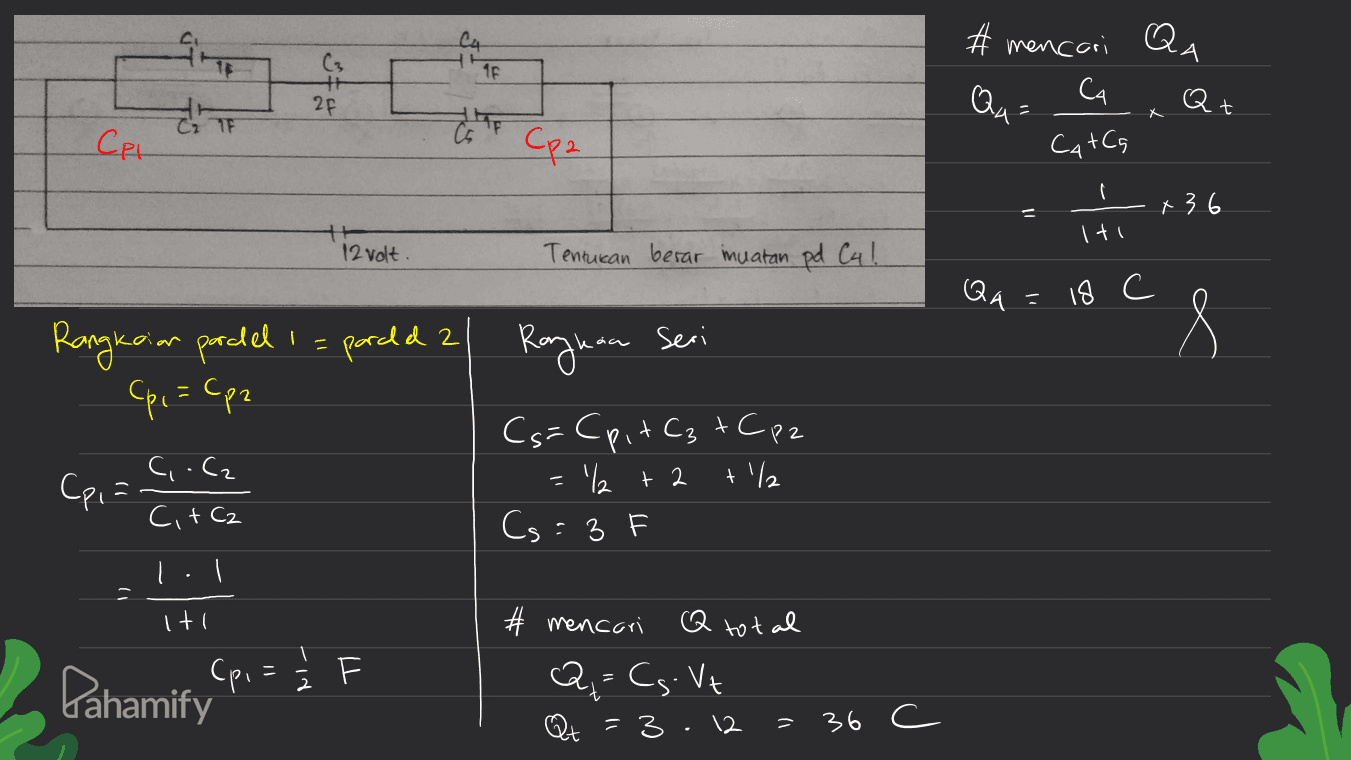 C1
1F
C2 1F
CP1
C3
2F
C4
1F
C5 1F
CP2
12 volt.
Tentukan besar muatan pd C4!
Rangkaian paralel 1 = paralel 2
Cp1 = Cp2
Cp1 = C1 . C2
C1 + C2
= 1 . 1
1+1
Cp1 = 1/2 F
Rangkaan Seri
Cs = Cp1 + C3 + Cp2
= 1/2 + 2 + 1/2
Cs = 3 F
# mencari Q total
Qt = Cs . Vt
Qt = 3 . 12 = 36 C
# mencari Q4
Q4 = C4 x Qt
C4+C5
= 1 x 36
1+1
Q4 = 18 C
Pahamify